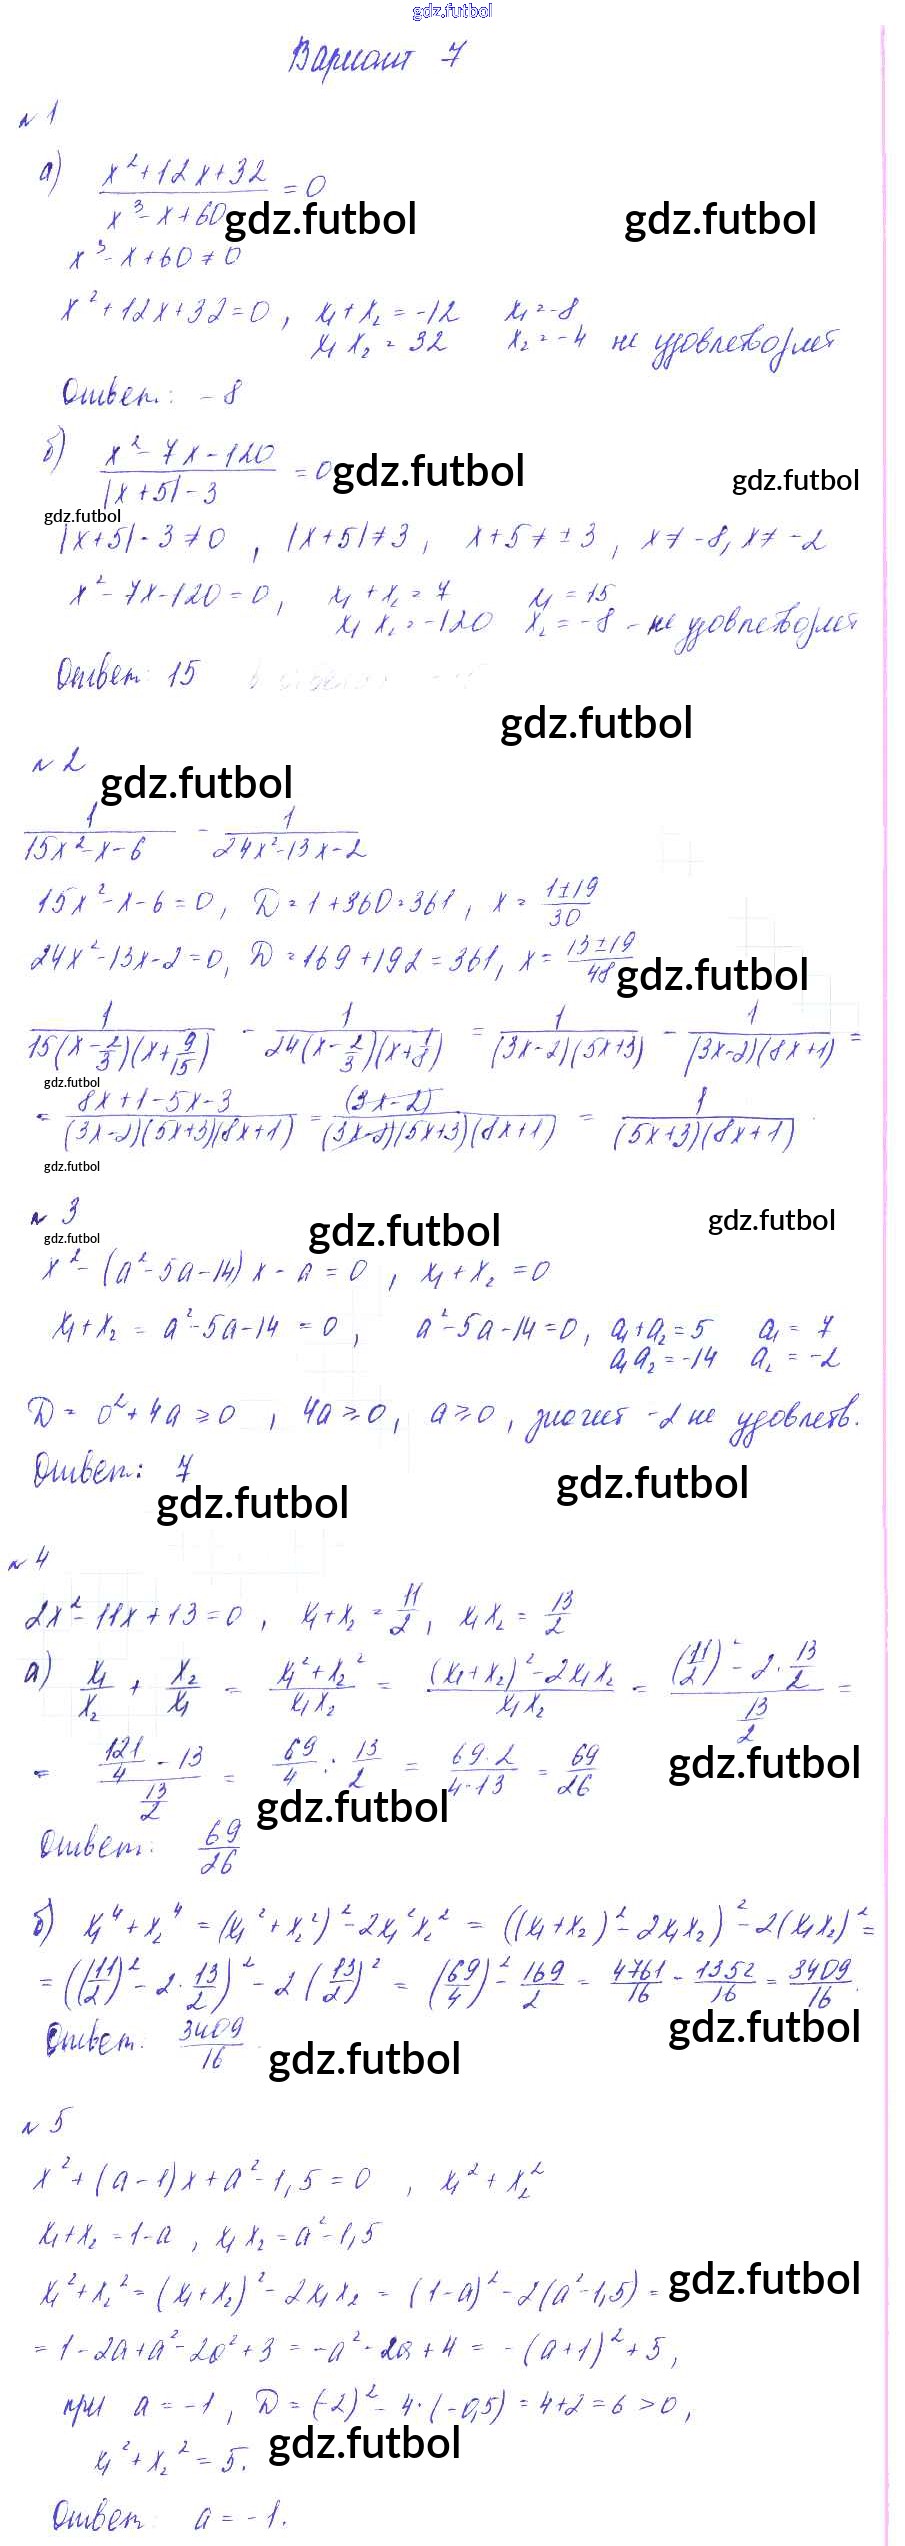 gdz.futbol
Вариант 7
№ 1
а) (x² + 12x + 32)/(x³ - x + 60) = 0
gdz.futbol gdz.futbol
x³ - x + 60 ≠ 0
x² + 12x + 32 = 0, x₁ + x₂ = -12 x₁ = -8
x₁ x₂ = 32 x₂ = -4 не удовлетворяет
Ответ: -8
б) (x² - 7x - 120)/(|x + 5| - 3) = 0
gdz.futbol gdz.futbol
gdz.futbol
|x + 5| - 3 ≠ 0, |x + 5| ≠ 3, x + 5 ≠ ± 3, x ≠ -8, x ≠ -2
x² - 7x - 120 = 0, x₁ + x₂ = 7 x₁ = 15
x₁ x₂ = -120 x₂ = -8 - не удовлетворяет
Ответ: 15
gdz.futbol
№ 2
gdz.futbol
1/(15x² - x - 6) - 1/(24x² - 13x - 2)
15x² - x - 6 = 0, D = 1 + 360 = 361, x = (1 ± 19)/30
24x² - 13x - 2 = 0, D = 169 + 192 = 361, x = (13 ± 19)/48
gdz.futbol
1/(15(x - 2/3)(x + 9/15)) - 1/(24(x - 2/3)(x + 1/8)) = 1/((3x - 2)(5x + 3)) - 1/((3x - 2)(8x + 1)) =
gdz.futbol
= (8x + 1 - 5x - 3)/((3x - 2)(5x + 3)(8x + 1)) = (3x - 2)/((3x - 2)(5x + 3)(8x + 1)) = 1/((5x + 3)(8x + 1)).
gdz.futbol
№ 3
gdz.futbol gdz.futbol
gdz.futbol
x² - (a² - 5a - 14)x - a = 0, x₁ + x₂ = 0
x₁ + x₂ = a² - 5a - 14 = 0, a² - 5a - 14 = 0, a₁ + a₂ = 5 a₁ = 7
a₁ a₂ = -14 a₂ = -2
D = 0² + 4a ≥ 0, 4a ≥ 0, a ≥ 0, значит -2 не удовлетв.
Ответ: 7
gdz.futbol gdz.futbol
№ 4
2x² - 11x + 13 = 0, x₁ + x₂ = 11/2, x₁ x₂ = 13/2
а) x₁/x₂ + x₂/x₁ = (x₁² + x₂²)/(x₁ x₂) = ((x₁ + x₂)² - 2x₁ x₂)/(x₁ x₂) = ((11/2)² - 2 · 13/2)/(13/2) =
= (121/4 - 13)/(13/2) = 69/4 : 13/2 = (69 · 2)/(4 · 13) = 69/26
gdz.futbol
gdz.futbol
Ответ: 69/26
б) x₁⁴ + x₂⁴ = (x₁² + x₂²)² - 2x₁² x₂² = ((x₁ + x₂)² - 2x₁ x₂)² - 2(x₁ x₂)² =
= ((11/2)² - 2 · 13/2)² - 2(13/2)² = (69/4)² - 169/2 = 4761/16 - 1352/16 = 3409/16.
gdz.futbol
Ответ: 3409/16.
gdz.futbol
№ 5
x² + (a - 1)x + a² - 1,5 = 0, x₁² + x₂²
x₁ + x₂ = 1 - a, x₁ x₂ = a² - 1,5
x₁² + x₂² = (x₁ + x₂)² - 2x₁ x₂ = (1 - a)² - 2(a² - 1,5) =
gdz.futbol
= 1 - 2a + a² - 2a² + 3 = -a² - 2a + 4 = -(a + 1)² + 5,
при a = -1, D = (-2)² - 4 · (-0,5) = 4 + 2 = 6 > 0,
gdz.futbol
x₁² + x₂² = 5.
Ответ: a = -1.